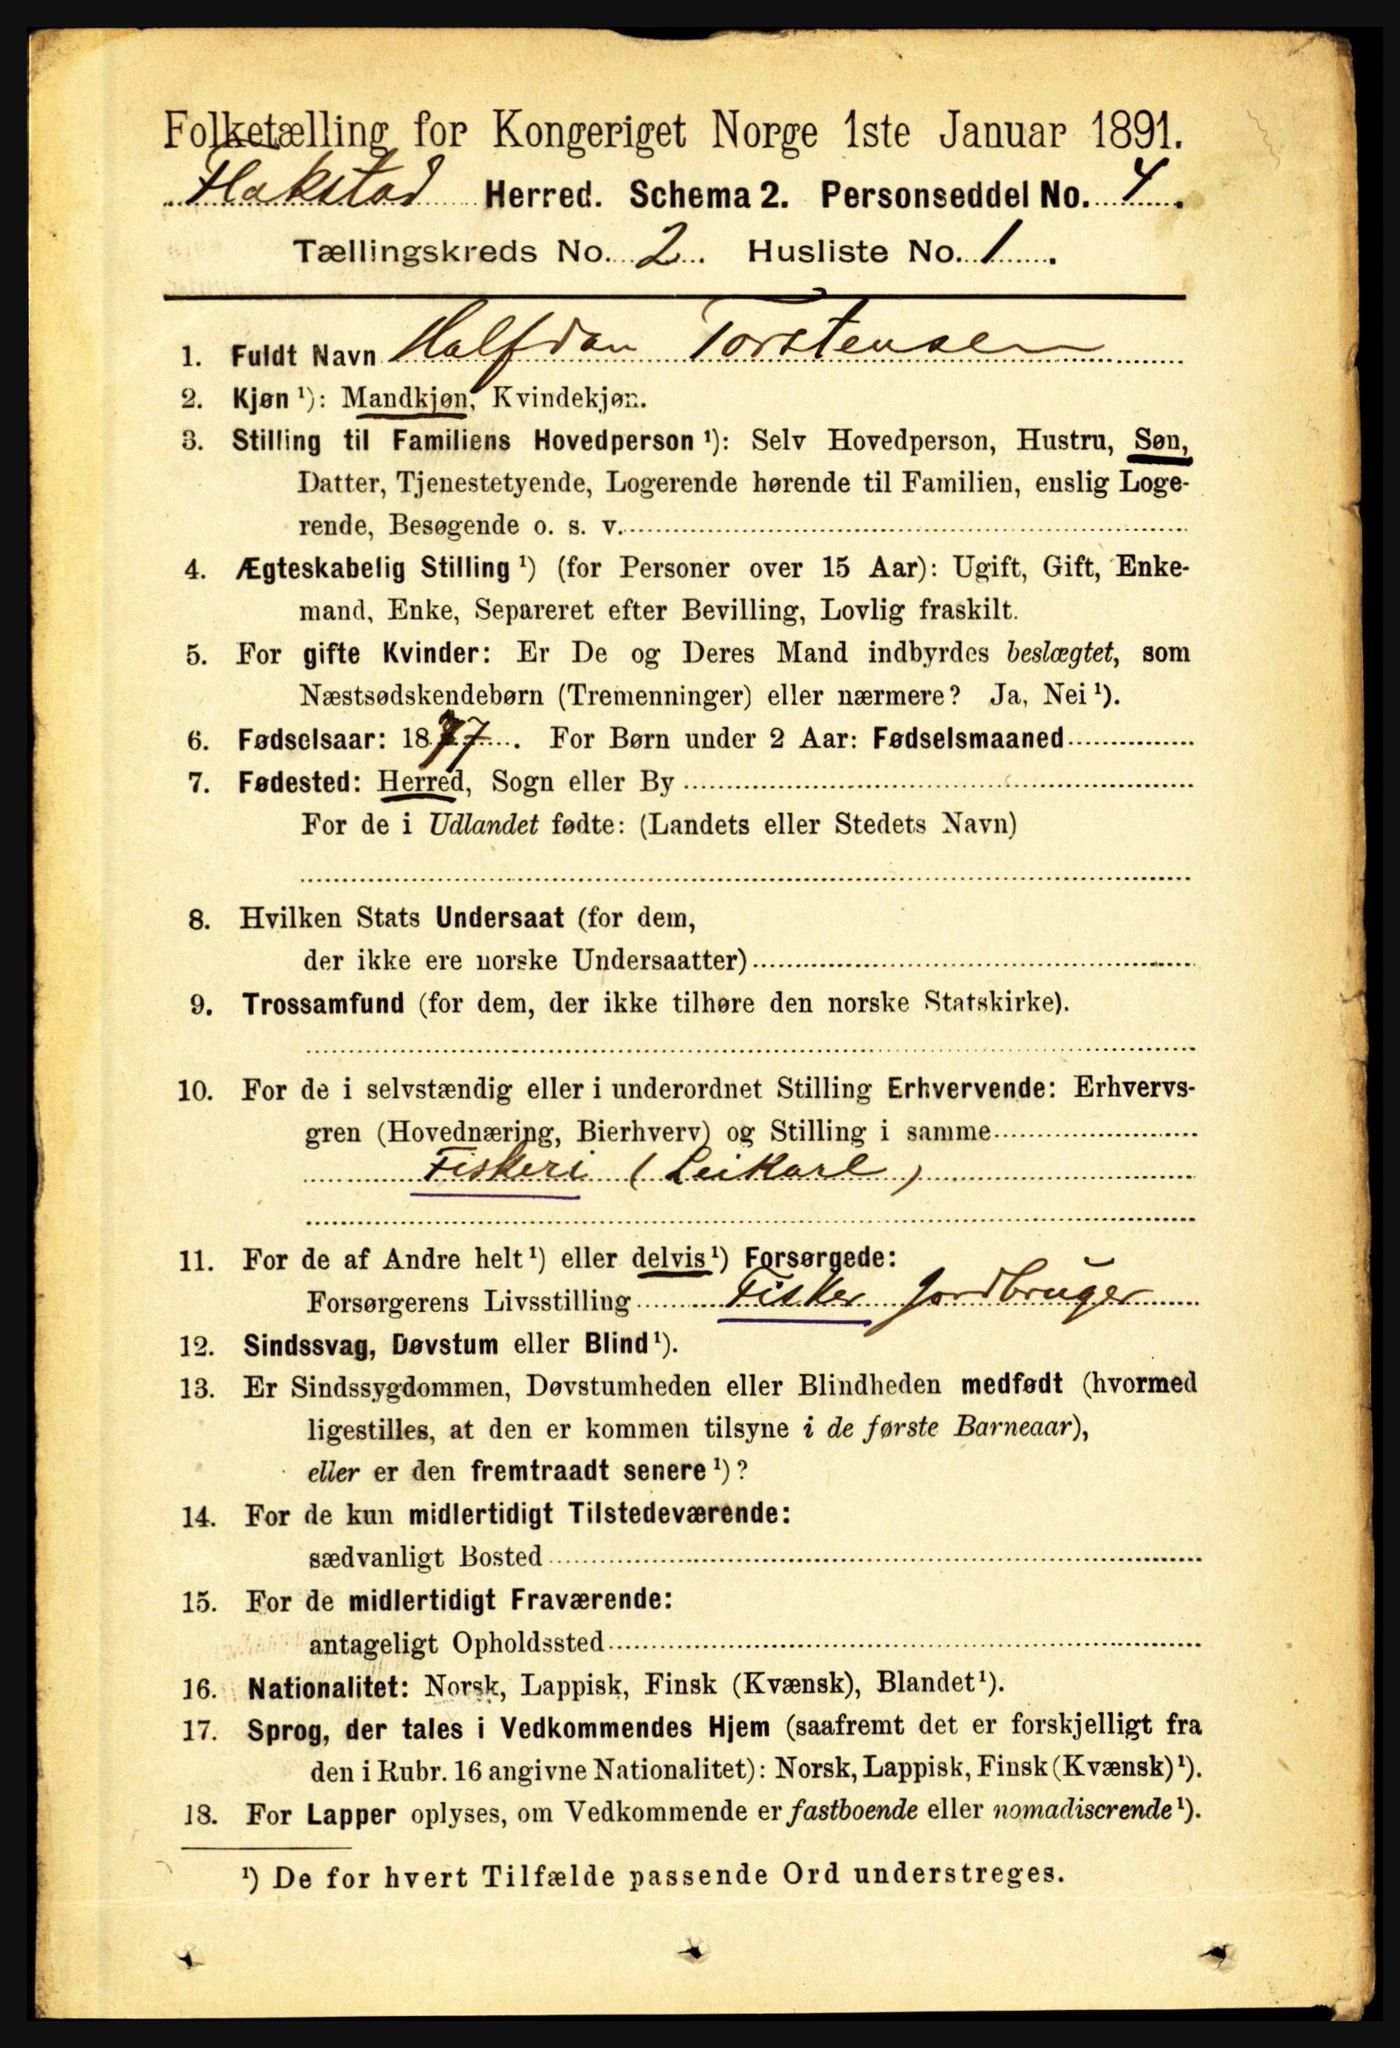 Folketælling for Kongeriget Norge 1ste Januar 1891.
Flakstad Herred. Schema 2. Personseddel No. 4.
Tællingskreds No. 2. Husliste No. 1.
1. Fuldt Navn Halfdan Torstensen
2. Kjøn ¹): Mandkjøn, Kvindekjøn.
3. Stilling til Familiens Hovedperson ¹): Selv Hovedperson, Hustru, Søn,
Datter, Tjenestetyende, Logerende hørende til Familien, enslig Loge-
rende, Besøgende o. s. v.
4. Ægteskabelig Stilling ¹) (for Personer over 15 Aar): Ugift, Gift, Enke-
mand, Enke, Separeret efter Bevilling, Lovlig fraskilt.
5. For gifte Kvinder: Er De og Deres Mand indbyrdes beslægtet, som
Næstsødskendebørn (Tremenninger) eller nærmere? Ja, Nei ¹).
6. Fødselsaar: 1877. For Børn under 2 Aar: Fødselsmaaned
7. Fødested: Herred, Sogn eller By
For de i Udlandet fødte: (Landets eller Stedets Navn)
8. Hvilken Stats Undersaat (for dem,
der ikke ere norske Undersaatter)
9. Trossamfund (for dem, der ikke tilhøre den norske Statskirke).
10. For de i selvstændig eller i underordnet Stilling Erhvervende: Erhvervs-
gren (Hovednæring, Bierhverv) og Stilling i samme
Fiskeri (Leikarl)
11. For de af Andre helt ¹) eller delvis ¹) Forsørgede:
Forsørgerens Livsstilling Fisker Jordbruger
12. Sindssvag, Døvstum eller Blind ¹).
13. Er Sindssygdommen, Døvstumheden eller Blindheden medfødt (hvormed
ligestilles, at den er kommen tilsyne i de første Barneaar),
eller er den fremtraadt senere ¹)?
14. For de kun midlertidigt Tilstedeværende:
sædvanligt Bosted
15. For de midlertidigt Fraværende:
antageligt Opholdssted
16. Nationalitet: Norsk, Lappisk, Finsk (Kvænsk), Blandet ¹).
17. Sprog, der tales i Vedkommendes Hjem (saafremt det er forskjelligt fra
den i Rubr. 16 angivne Nationalitet): Norsk, Lappisk, Finsk (Kvænsk) ¹).
18. For Lapper oplyses, om Vedkommende er fastboende eller nomadiserende ¹).
¹) De for hvert Tilfælde passende Ord understreges.